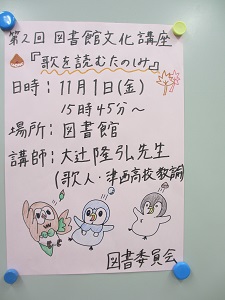 第2回 図書館文化講座
『歌を読むたのしみ』
日時：11月1日(金)
15時45分～
場所：図書館
講師：大辻隆弘先生
(歌人・津西高校教諭)
図書委員会